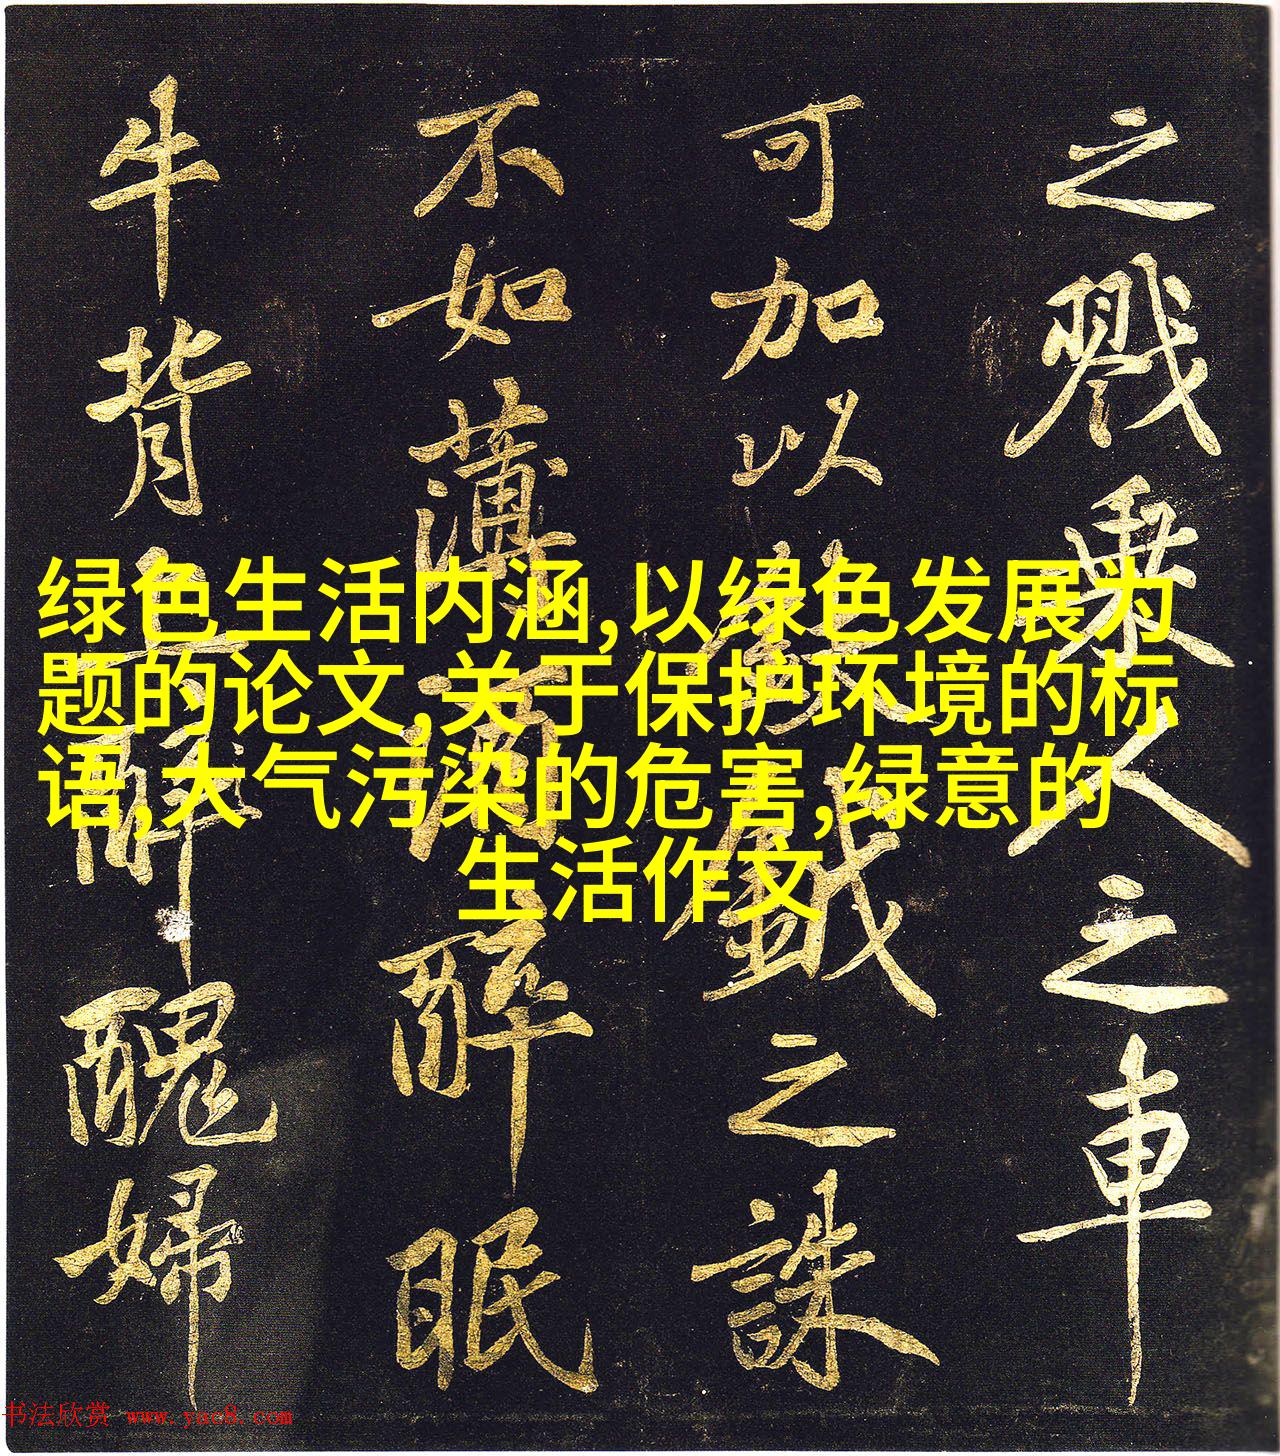 之戮乘人之車
可加以鈇鉞之誅
不如薄酒醉眠
牛背上醉醜婦
绿色生活内涵,以绿色发展为
题的论文,关于保护环境的标
语,大气污染的危害,绿意的
生活作文
书法欣赏 www.yac8.com